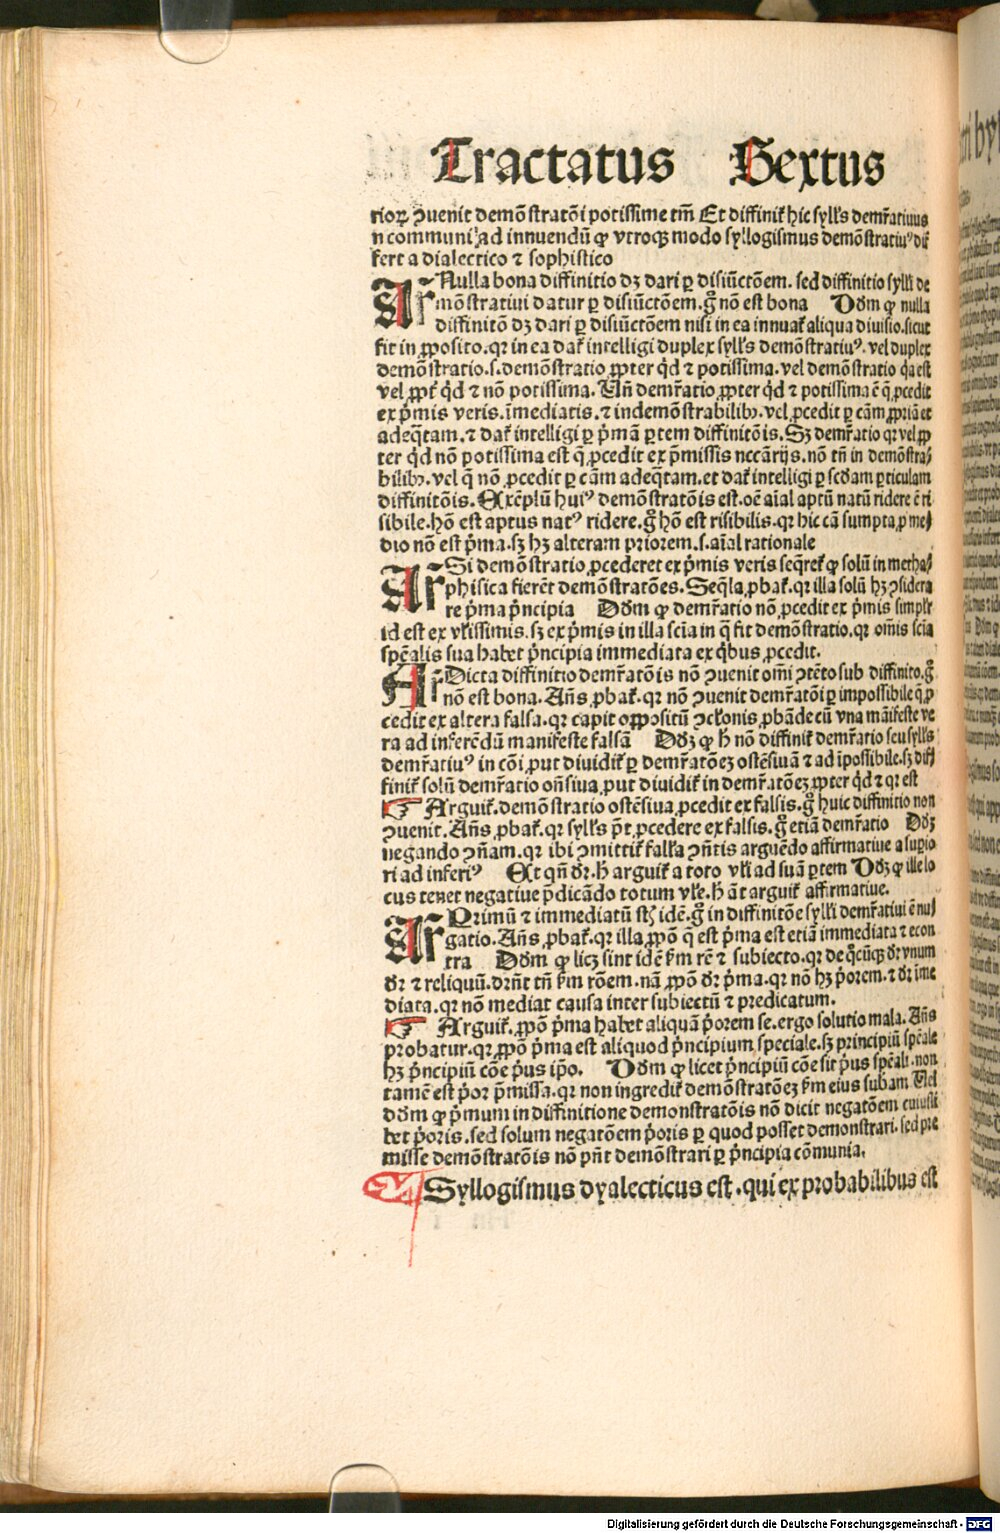 Tractatus Sextus
rioꝝ ꝯuenit demõstratõi potissime tm̃ Et diffinit᷑ hic syll's demr̃atiuus
n communi ad innuendũ ꝙ vtroqꝫ modo syllogismus demõstratiuꝰ dif
fert a dialectico ⁊ sophistico
Ar̃ Nulla bona diffinitio dꝫ dari ꝑ disiũctõem. sed diffinitio sylli de
mõstratiui datur ꝑ disiũctõem. gͦ nõ est bona Dd̃m ꝙ nulla
diffinitõ dꝫ dari ꝑ disiũctõem nisi in ea innuat᷑ aliqua diuisio. sicut
fit in ꝓposito. qꝛ in ea dat᷑ intelligi duplex syll's demõstratiuꝰ. vel duplex
demõstratio. s. demõstratio ꝓpter qͥd ⁊ potissima. vel demõstratio qͥa est
vel ꝓpt᷑ qͥd ⁊ nõ potissima. Uñ demr̃atio ꝓpter qͥd ⁊ potissima ẽ q̃ ꝓcedit
ex p̃mis veris. ĩmediatis. ⁊ indemõstrabilibꝫ. vel ꝓcedit ꝑ cãm ꝓpriã et
adeq̃tam. ⁊ dat᷑ intelligi ꝑ p̃mã ꝑtem diffinitõis. Sꝫ demr̃atio qꝛ vel ꝓp
ter qͥd nõ potissima est q̃ ꝓcedit ex p̃missis nccãrijs. nõ tñ in demõstra/
bilibꝫ. vel q̃ nõ ꝓcedit ꝑ cãm adeq̃tam. et dat᷑ intelligi ꝑ scd̃am ꝑticulam
diffinitõis. Exẽplũ huiꝰ demõstratõis est. oẽ aĩal aptũ natũ ridere ẽ ri
sibile. hõ est aptus natꝰ ridere. gͦ hõ est risibilis. qꝛ hic cã sumpta ꝓ me/
dio nõ est p̃ma. sꝫ hꝫ alteram priorem. s. aĩal rationale
Ar̃ Si demõstratio ꝓcederet ex p̃mis veris seq̃ret᷑ ꝙ solũ in metha/
phisica fierẽt demõstratões. Seq̃la ꝓbat᷑. qꝛ illa solũ hꝫ ꝯsidera
re p̃ma p̃ncipia Dd̃m ꝙ demr̃atio nõ ꝓcedit ex p̃mis simplr̃
id est ex vl'issimis. sꝫ ex p̃mis in illa scĩa in q̃ fit demõstratio. qꝛ om̃is scĩa
spẽalis sua habet p̃ncipia immediata ex qͥbus ꝓcedit.
Ar̃ Dicta diffinitio demr̃atõis nõ ꝯuenit om̃i ꝯtẽto sub diffinito. gͦ
nõ est bona. Añs ꝓbat᷑. qꝛ nõ ꝯuenit demr̃atõi ꝑ impossibile q̃ ꝓ
cedit ex altera falsa. qꝛ capit oppositũ ꝯclonis ꝓbãde cũ vna mãifeste ve
ra ad inferẽdũ manifeste falsã Dd̃ꝫ ꝙ h̃ nõ diffinit᷑ demr̃atio seu syll's
demr̃atiuꝰ in cõi ꝓut diuidit᷑ ꝑ demr̃atõeꝫ ostẽsiuã ⁊ ad ĩpossibile. sꝫ dif/
finit᷑ solũ demr̃atio oñsiua ꝓut diuidit᷑ in demr̃atõeꝫ ꝓpter qͥd ⁊ qꝛ est
☞ Arguit᷑. demõstratio ostẽsiua ꝓcedit ex falsis. gͦ huic diffinitio non
ꝯuenit. Añs ꝓbat᷑. qꝛ syll's põt ꝓcedere ex falsis. gͦ etiã demr̃atio Dd̃ꝫ
negando ꝯñam. qꝛ ibi ꝯmittit᷑ fall'a ꝯñtis arguẽdo affirmatiue a supio
ri ad inferiꝰ Et qñ dr̃. h̃ arguit᷑ a toto vl'i ad suã ꝑtem Dd̃ꝫ ꝙ ille lo
cus tenet negatiue p̃dicãdo totum vl'e. h̃ ãt arguit᷑ affirmatiue.
Ar̃ Primũ ⁊ immediatũ st̃ idẽ. gͦ in diffinitõe sylli demr̃atiui ẽ nu/
gatio. Añs ꝓbat᷑. qꝛ illa ꝓpõ q̃ est p̃ma est etiã immediata ⁊ econ
tra Dd̃m ꝙ licꝫ sint idẽ ẜm rẽ ⁊ subiecto. qꝛ de qͦcũqꝫ dr̃ vnum
dr̃ ⁊ reliquũ. drñt tñ ẜm rõem. nã ꝓpõ dr̃ p̃ma. qꝛ nõ hꝫ p̃orem. ⁊ dr̃ ĩme
diata. qꝛ nõ mediat causa inter subiectũ ⁊ predicatum.
☞ Arguit᷑. ꝓpõ p̃ma habet aliquã p̃orem se. ergo solutio mala. Añs
probatur. qꝛ ꝓpõ p̃ma est aliquod p̃ncipium speciale. sꝫ principiũ spẽale
hꝫ p̃ncipiũ cõe p̃us ip̃o. Dd̃m ꝙ licet p̃ncipiũ cõe sit p̃us spẽali. non
tamẽ est p̃or p̃missa. qꝛ non ingredit᷑ demõstratõeꝫ ẜm eius subam Uel
dd̃m ꝙ p̃mum in diffinitione demonstratõis nõ dicit negatõem cuiusli
bet p̃oris. sed solum negatõem p̃oris ꝑ quod posset demonstrari. sed pre
misse demõstratõis nõ pñt demõstrari ꝑ p̃ncipia cõmunia.
Syllogismus dyalecticus est. qui ex probabilibus est
Digitalisierung gefördert durch die Deutsche Forschungsgemeinschaft - DFG